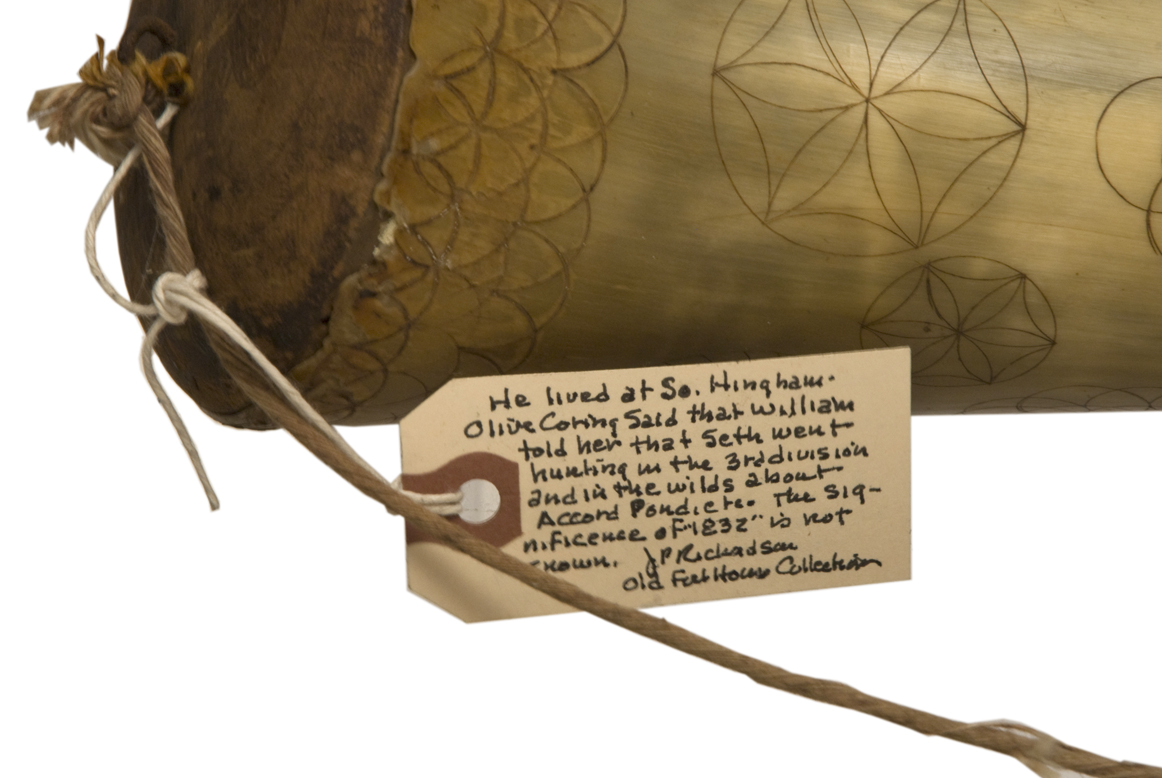 He lived at So. Hingham.
Olive Coring Said that William
told her that Seth went
hunting in the 3rd division
and in the wilds about
Accord Pond, etc. The Sig-
nificence of "1832" is not
known. J P Richardson
Old Fort House Collection